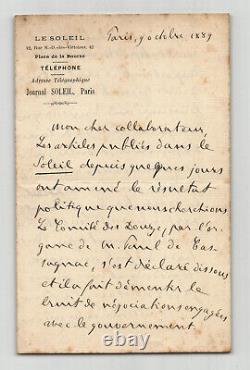 LE SOLEIL
42, Rue N.-D.-des-Victoires, 42
Place de la Bourse
TÉLÉPHONE
Adresse Télégraphique
Journal SOLEIL, Paris
Paris, 9 octobre 1889
Mon cher collaborateur,
Les articles publiés dans le
Soleil depuis quelques jours
ont amené le résultat
politique que nous cherchions
Le Comité des Douze, par l'or-
gane de M. Paul de Cas-
sagnac, s'est déclaré dissous
et il a fait démentir le
bruit de négociations engagées
avec le gouvernement.